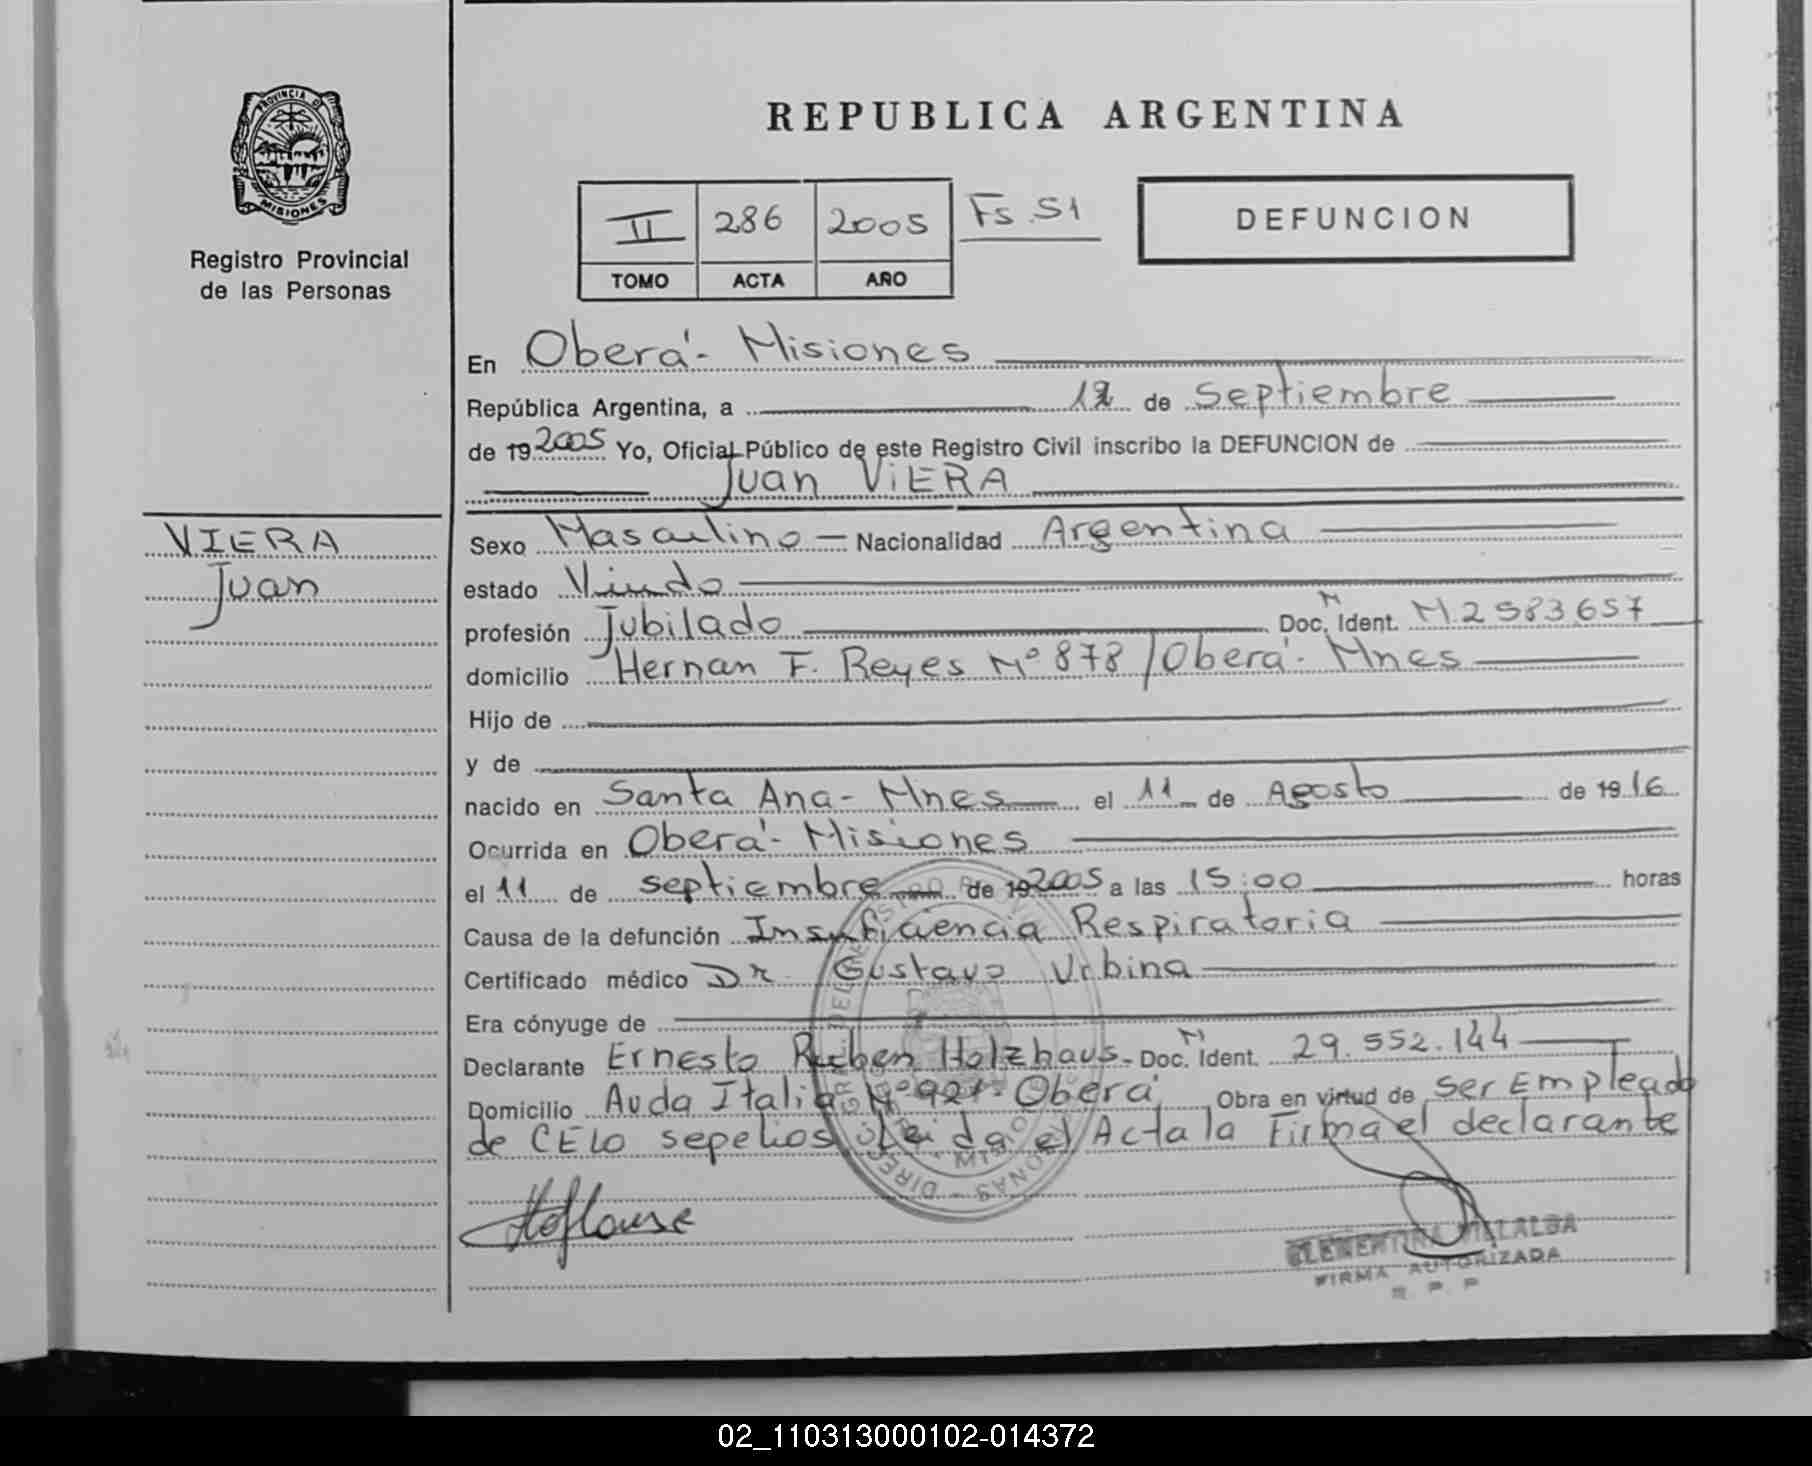 PROVINCIA D
MISIONES
Registro Provincial
de las Personas
REPUBLICA ARGENTINA
II 286 2005 Fs. 51
TOMO ACTA AÑO
DEFUNCION
En Oberá - Misiones
República Argentina, a 12 de Septiembre
de 19 2005 Yo, Oficial Público de este Registro Civil inscribo la DEFUNCION de
Juan ViERA
VIERA
Juan
Sexo Masculino - Nacionalidad Argentina
estado Viudo
profesión Jubilado Doc. N Ident. M.2583657
domicilio Hernan F. Reyes Nº 878 / Oberá - Mnes
Hijo de
y de
nacido en Santa Ana - Mnes el 11 de Agosto de 19 16
Ocurrida en Oberá - Misiones
el 11 de septiembre de 19 2005 a las 15:00 horas
Causa de la defunción Insuficiencia Respiratoria
Certificado médico Dr. Gustavo Urbina
Era cónyuge de
Declarante Ernesto Ruben Holzhaus - Doc. N Ident. 29.552.144
Domicilio Avda Italia Nº 921 - Oberá Obra en virtud de Ser Empleado
de CELO sepelios. Leida el Acta la Firma el declarante
CLEMENTINA VILLALBA
FIRMA AUTORIZADA
R. P. P
02_110313000102-014372